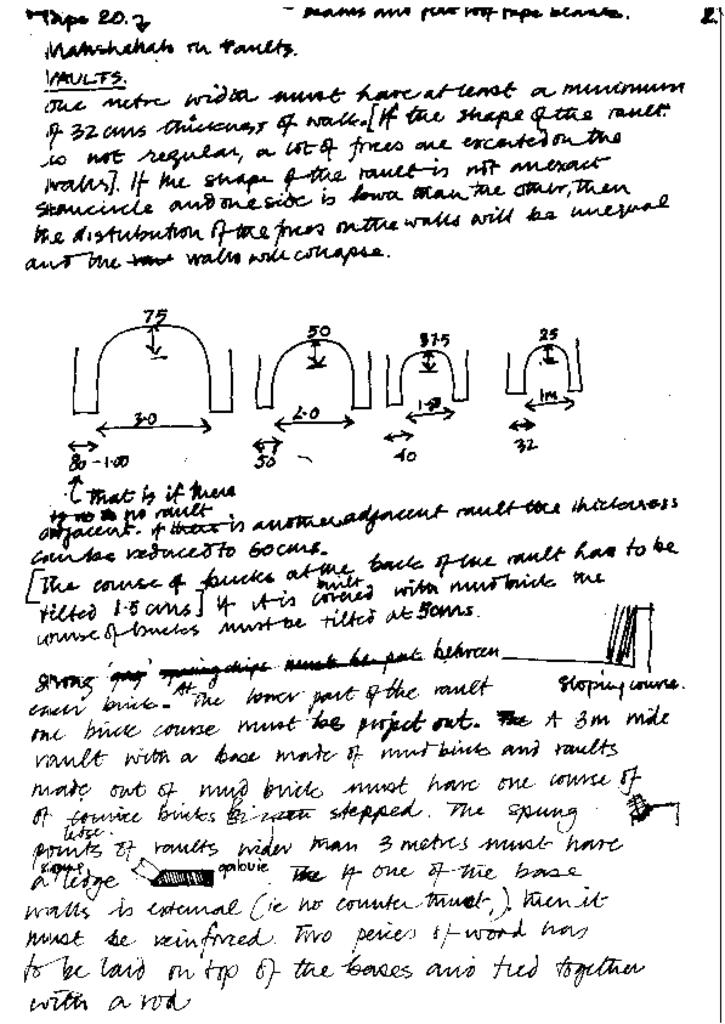 Tape 20. - beams and flat roof tape blank. 2.
on Vaults.
VAULTS.
One metre width must have at least a minimum
of 32 cms thickness of walk. [If the shape of the vault
is not regular, a lot of forces are excerted on the
walls]. If the shape of the vault is not an exact
semicircle and one side is lower than the other, then
the distribution of the forces on the walls will be unequal
and the walls will collapse.
75 50 37.5 25
3.0 2.0 1m
80 - 1.00 50 40 32
that is if there
is no vault
adjacent. If there is another adjacent vault the thickness
can be reduced to 60cms.
[The course of bricks at the back of the vault has to be
tilted 1.5 cms] If it is covered built with mud brick the
course of bricks must be tilted at 5cms.
strong spring chips must be put between
each brick. At the lower part of the vault sloping course.
one brick course must be project out. The A 3m wide
vault with a base made of mud bricks and vaults
made out of mud brick must have one course of
of bricks stepped. The spring
points of vaults wider than 3 metres must have
a ledge The If one of the base
walls is external (ie no counter thrust,). then it
must be reinforced. Two peices of wood has
to be laid on top of the bases and tied together
with a rod